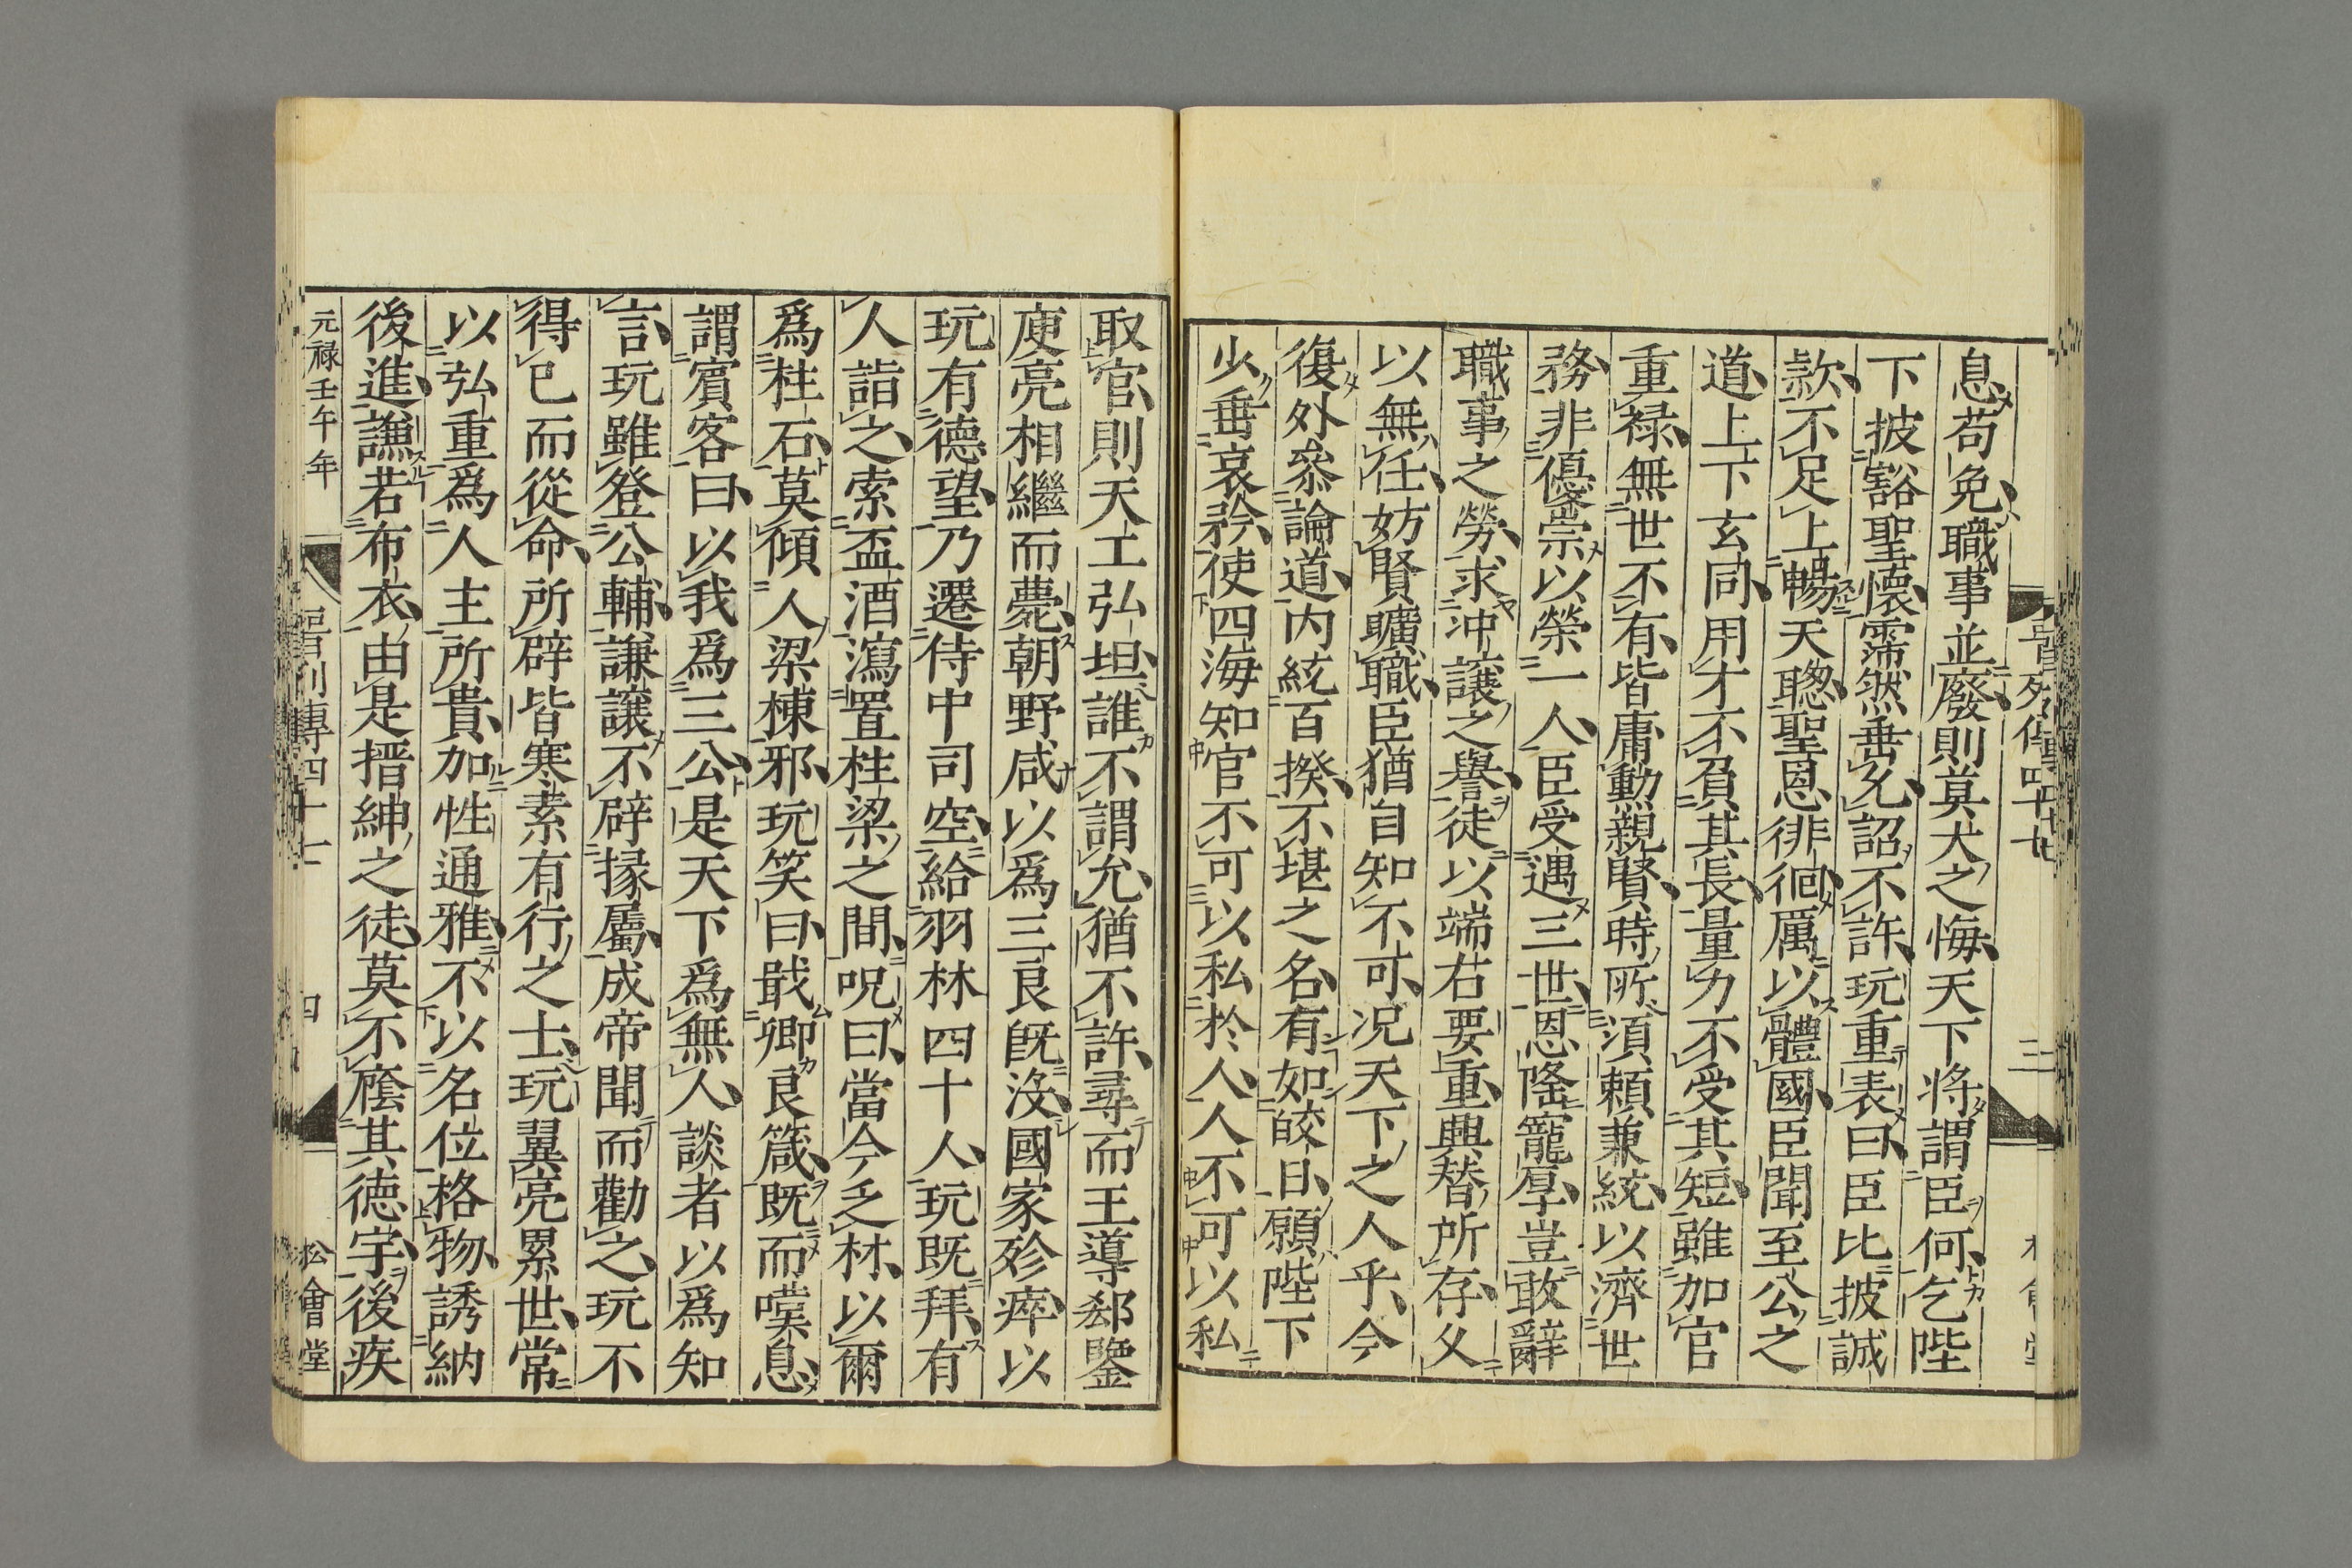 晉列傳四十七
三
息苟免職事並廢則莫大之悔天下將謂臣何乞陛
下披豁聖懷霈然垂允詔不許玩重表曰臣比披誠
款不足上暢天聰聖恩徘徊厲以體國臣聞至公之
道上下玄同用才不負其長量力不受其短雖加官
重祿無世不有皆庸勳親賢時所須賴兼統以濟世
務非優崇以榮一人臣受遇三世恩隆寵厚豈敢辭
職事之勞求冲讓之譽徒以端右要重興替所存久
以無任妨賢曠職臣猶自知不可况天下之人乎今
復外叅論道内統百揆不堪之名有如皎日願陛下
少垂哀矜使四海知官不可以私於人人不可以私
取官則天工弘坦誰不謂允猶不許尋而王導郄鑒
庾亮相繼而薨朝野咸以爲三良既沒國家殄瘁以
玩有德望乃遷侍中司空給羽林四十人玩既拜有
人詣之索盃酒瀉置柱梁之間呪曰當今乏材以爾
爲柱石莫傾人梁棟邪玩笑曰戢卿良箴既而嘆息
謂賓客曰以我爲三公是天下爲無人談者以爲知
言玩雖登公輔謙讓不辟掾屬成帝聞而勸之玩不
得已而從命所辟皆寒素有行之士玩翼亮累世常
以弘重爲人主所貴加性通雅不以名位格物誘納
後進謙若布衣由是搢紳之徒莫不廕其德宇後疾
元禄壬午年
晉列傳四十七
四
松會堂